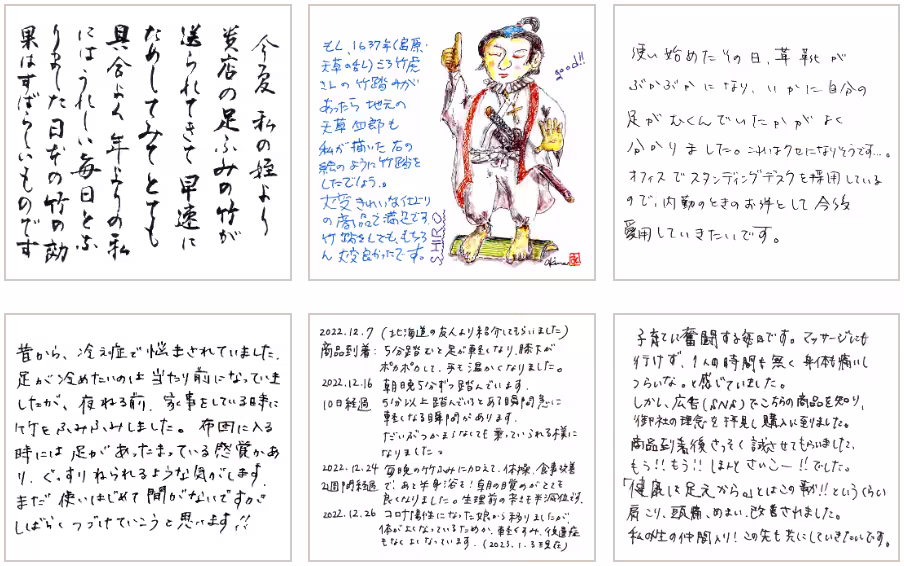 今度 私の姪より
貴店の足ふみの竹が
送られてきて 早速に
ためしてみてとても
具合よく 年よりの私
にはうれしい毎日とな
りました 日本の竹の効
果はすばらしいものです
もし、1637年(島原・
天草の乱)ころ竹虎
さんの竹踏みが
あったら 地元の
天草四郎も
私が描いた右の
絵のように竹踏を
したでしょう。
大変きれいな仕上り
の商品で満足です
竹踏をしても、もちろ
ん大変良かったです。
good!!
SHIRO
使い始めたその日、革靴が
ぶかぶかになり、いかに自分の
足がむくんでいたかがよく
分かりました。これはクセになりそうです…。
オフィスでスタンディングデスクを採用している
ので、内勤のときのお伴として今後
愛用していきたいです。
昔から、冷え症で悩まされていました。
足が冷めたいのは当たり前になっていま
したが、夜ねる前、家事をしている時に
竹をふみふみしました。布団に入る
時には足があったまっている感覚があ
り、ぐっすりねられるような気がします。
まだ使いはじめて間がないですが
しばらくつづけていこうと思います!!
2022.12.7 (北海道の友人より紹介してもらいました)
商品到着: 5分踏むと足が軽くなり、膝下が
ポカポカして、手も温かくなりました。
2022.12.16 朝晩5分ずつ踏んでいます。
10日経過 5分以上踏んでいるとある瞬間急に
軽くなる瞬間があります。
だいぶつかまらなくても乗っていられる様に
なりました。
2022.12.24 毎晩の竹ふみに加えて、体操、食事改善
2週間経過 で、あと半身浴も!朝の目覚めがとても
良くなりました。生理前の辛さも半減位に。
2022.12.26 コロナ陽性になった娘から移りましたが、
体がよくなっているためか、軽くすみ、後遺症
もなくよくなっています。(2023.1.3現在)
子育てに奮闘する毎日です。マッサージにも
行けず、1人の時間も無く 身体も痛いし
つらいな。と感じていました。
しかし、広告(SNS)でこちらの商品を知り、
御社の理念を拝見し購入に到りました。
商品到着後さっそく試させてもらいました、
もう!!もう!!ほんとさいこー!!でした。
「健康は足元から。」とはこの事か!!というくらい
肩こり、頭痛、めまい、改善されました。
私の生の仲間入り!この先も共にしていきたいです。